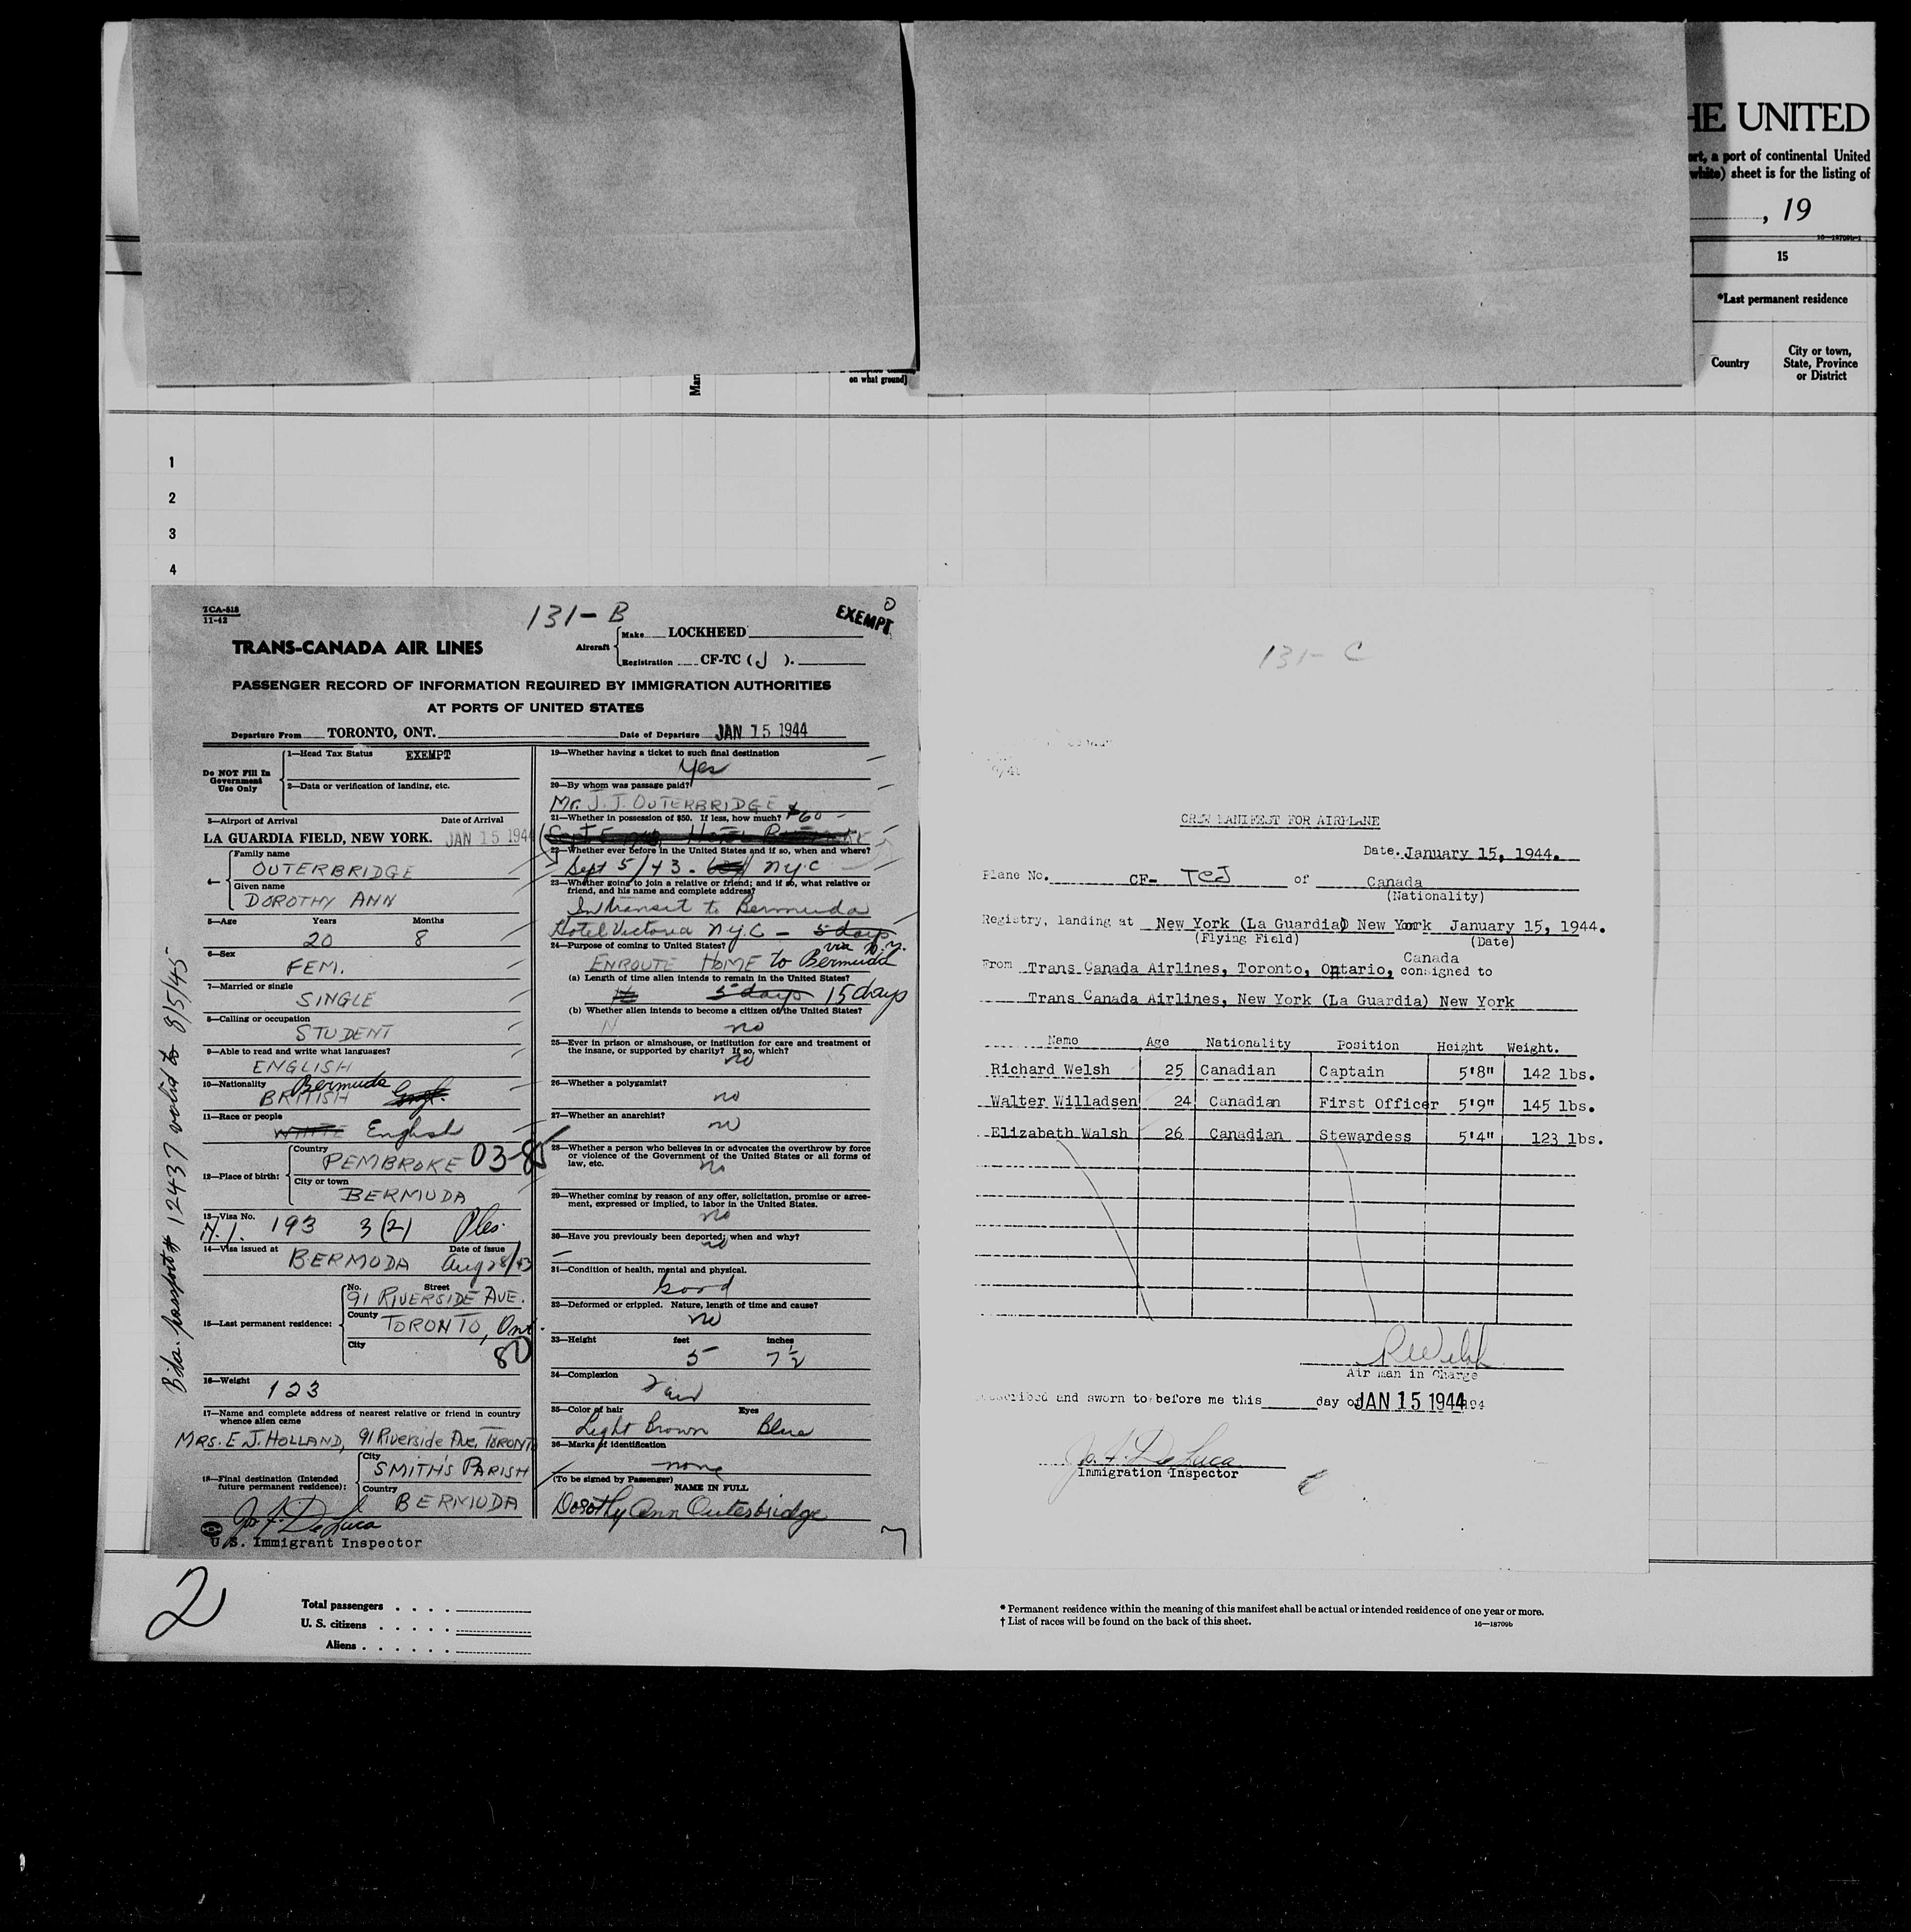 HE UNITED
ort, a port of continental United
white) sheet is for the listing of
, 19
16—18709b-1
15
*Last permanent residence
Country
City or town,
State, Province
or District
on what ground]
1
2
3
4
TCA-518
11-42
131-B
EXEMPT
TRANS-CANADA AIR LINES
Aircraft
Make LOCKHEED
Registration CF-TC (J).
PASSENGER RECORD OF INFORMATION REQUIRED BY IMMIGRATION AUTHORITIES
AT PORTS OF UNITED STATES
Departure From TORONTO, ONT. Date of Departure JAN 15 1944
Do NOT Fill In
Government
Use Only
1—Head Tax Status EXEMPT
2—Data or verification of landing, etc.
3—Airport of Arrival Date of Arrival
LA GUARDIA FIELD, NEW YORK. JAN 15 1944
4—
Family name
OUTERBRIDGE
Given name
DOROTHY ANN
5—Age Years Months
20 8
6—Sex
FEM.
7—Married or single
SINGLE
8—Calling or occupation
STUDENT
9—Able to read and write what languages?
ENGLISH
10—Nationality Bermuda
BRITISH
11—Race or people
WHITE English
12—Place of birth:
Country
PEMBROKE 03-85
City or town
BERMUDA
13—Visa No.
193 3(2)
14—Visa issued at Date of issue
BERMUDA Aug 28/43
15—Last permanent residence:
No. Street
91 RIVERSIDE AVE.
County
TORONTO, Ont.
City
80
16—Weight
123
17—Name and complete address of nearest relative or friend in country
whence alien came
MRS. E. J. HOLLAND, 91 Riverside Ave. TORONTO
18—Final destination (Intended
future permanent residence):
City
SMITH'S PARISH
Country
BERMUDA
Jo. F. De Luca
U.S. Immigrant Inspector
Bda. passport # 12437 valid to 8/5/45
19—Whether having a ticket to such final destination
Yes
20—By whom was passage paid?
Mr. J. J. OUTERBRIDGE
21—Whether in possession of $50. If less, how much? $60
22—Whether ever before in the United States and if so, when and where?
Sept 5/43. NYC
23—Whether going to join a relative or friend; and if so, what relative or
friend, and his name and complete address?
In transit to Bermuda
Hotel Victoria NYC — 5 days
24—Purpose of coming to United States? via N.Y.
ENROUTE HOME to Bermuda
(a) Length of time alien intends to remain in the United States?
5 days 15 days
(b) Whether alien intends to become a citizen of the United States?
no
25—Ever in prison or almshouse, or institution for care and treatment of
the insane, or supported by charity? If so, which?
no
26—Whether a polygamist?
no
27—Whether an anarchist?
no
28—Whether a person who believes in or advocates the overthrow by force
or violence of the Government of the United States or all forms of
law, etc.
no
29—Whether coming by reason of any offer, solicitation, promise or agree-
ment, expressed or implied, to labor in the United States.
no
30—Have you previously been deported; when and why?
no
31—Condition of health, mental and physical.
Good
32—Deformed or crippled. Nature, length of time and cause?
no
33—Height feet inches
5 7½
34—Complexion
Fair
35—Color of hair Eyes
Light Brown Blue
36—Marks of identification
none
(To be signed by Passenger)
NAME IN FULL
Dorothy Ann Outerbridge
131-C
CREW MANIFEST FOR AIRPLANE
Date. January 15, 1944.
Plane No. CF- TCJ of Canada
(Nationality)
Registry, landing at New York (La Guardia) New York January 15, 1944.
(Flying Field) (Date)
From Trans Canada Airlines, Toronto, Ontario, Canada consigned to
Trans Canada Airlines, New York (La Guardia) New York
Name Age Nationality Position Height Weight.
Richard Welsh 25 Canadian Captain 5'8" 142 lbs.
Walter Willadsen 24 Canadian First Officer 5'9" 145 lbs.
Elizabeth Walsh 26 Canadian Stewardess 5'4" 123 lbs.
R Welsh
Air man in Charge
and sworn to before me this day of JAN 15 1944 194
Jo. F. De Luca
Immigration Inspector
2
Total passengers
U. S. citizens
Aliens
* Permanent residence within the meaning of this manifest shall be actual or intended residence of one year or more.
† List of races will be found on the back of this sheet.
16—18709b